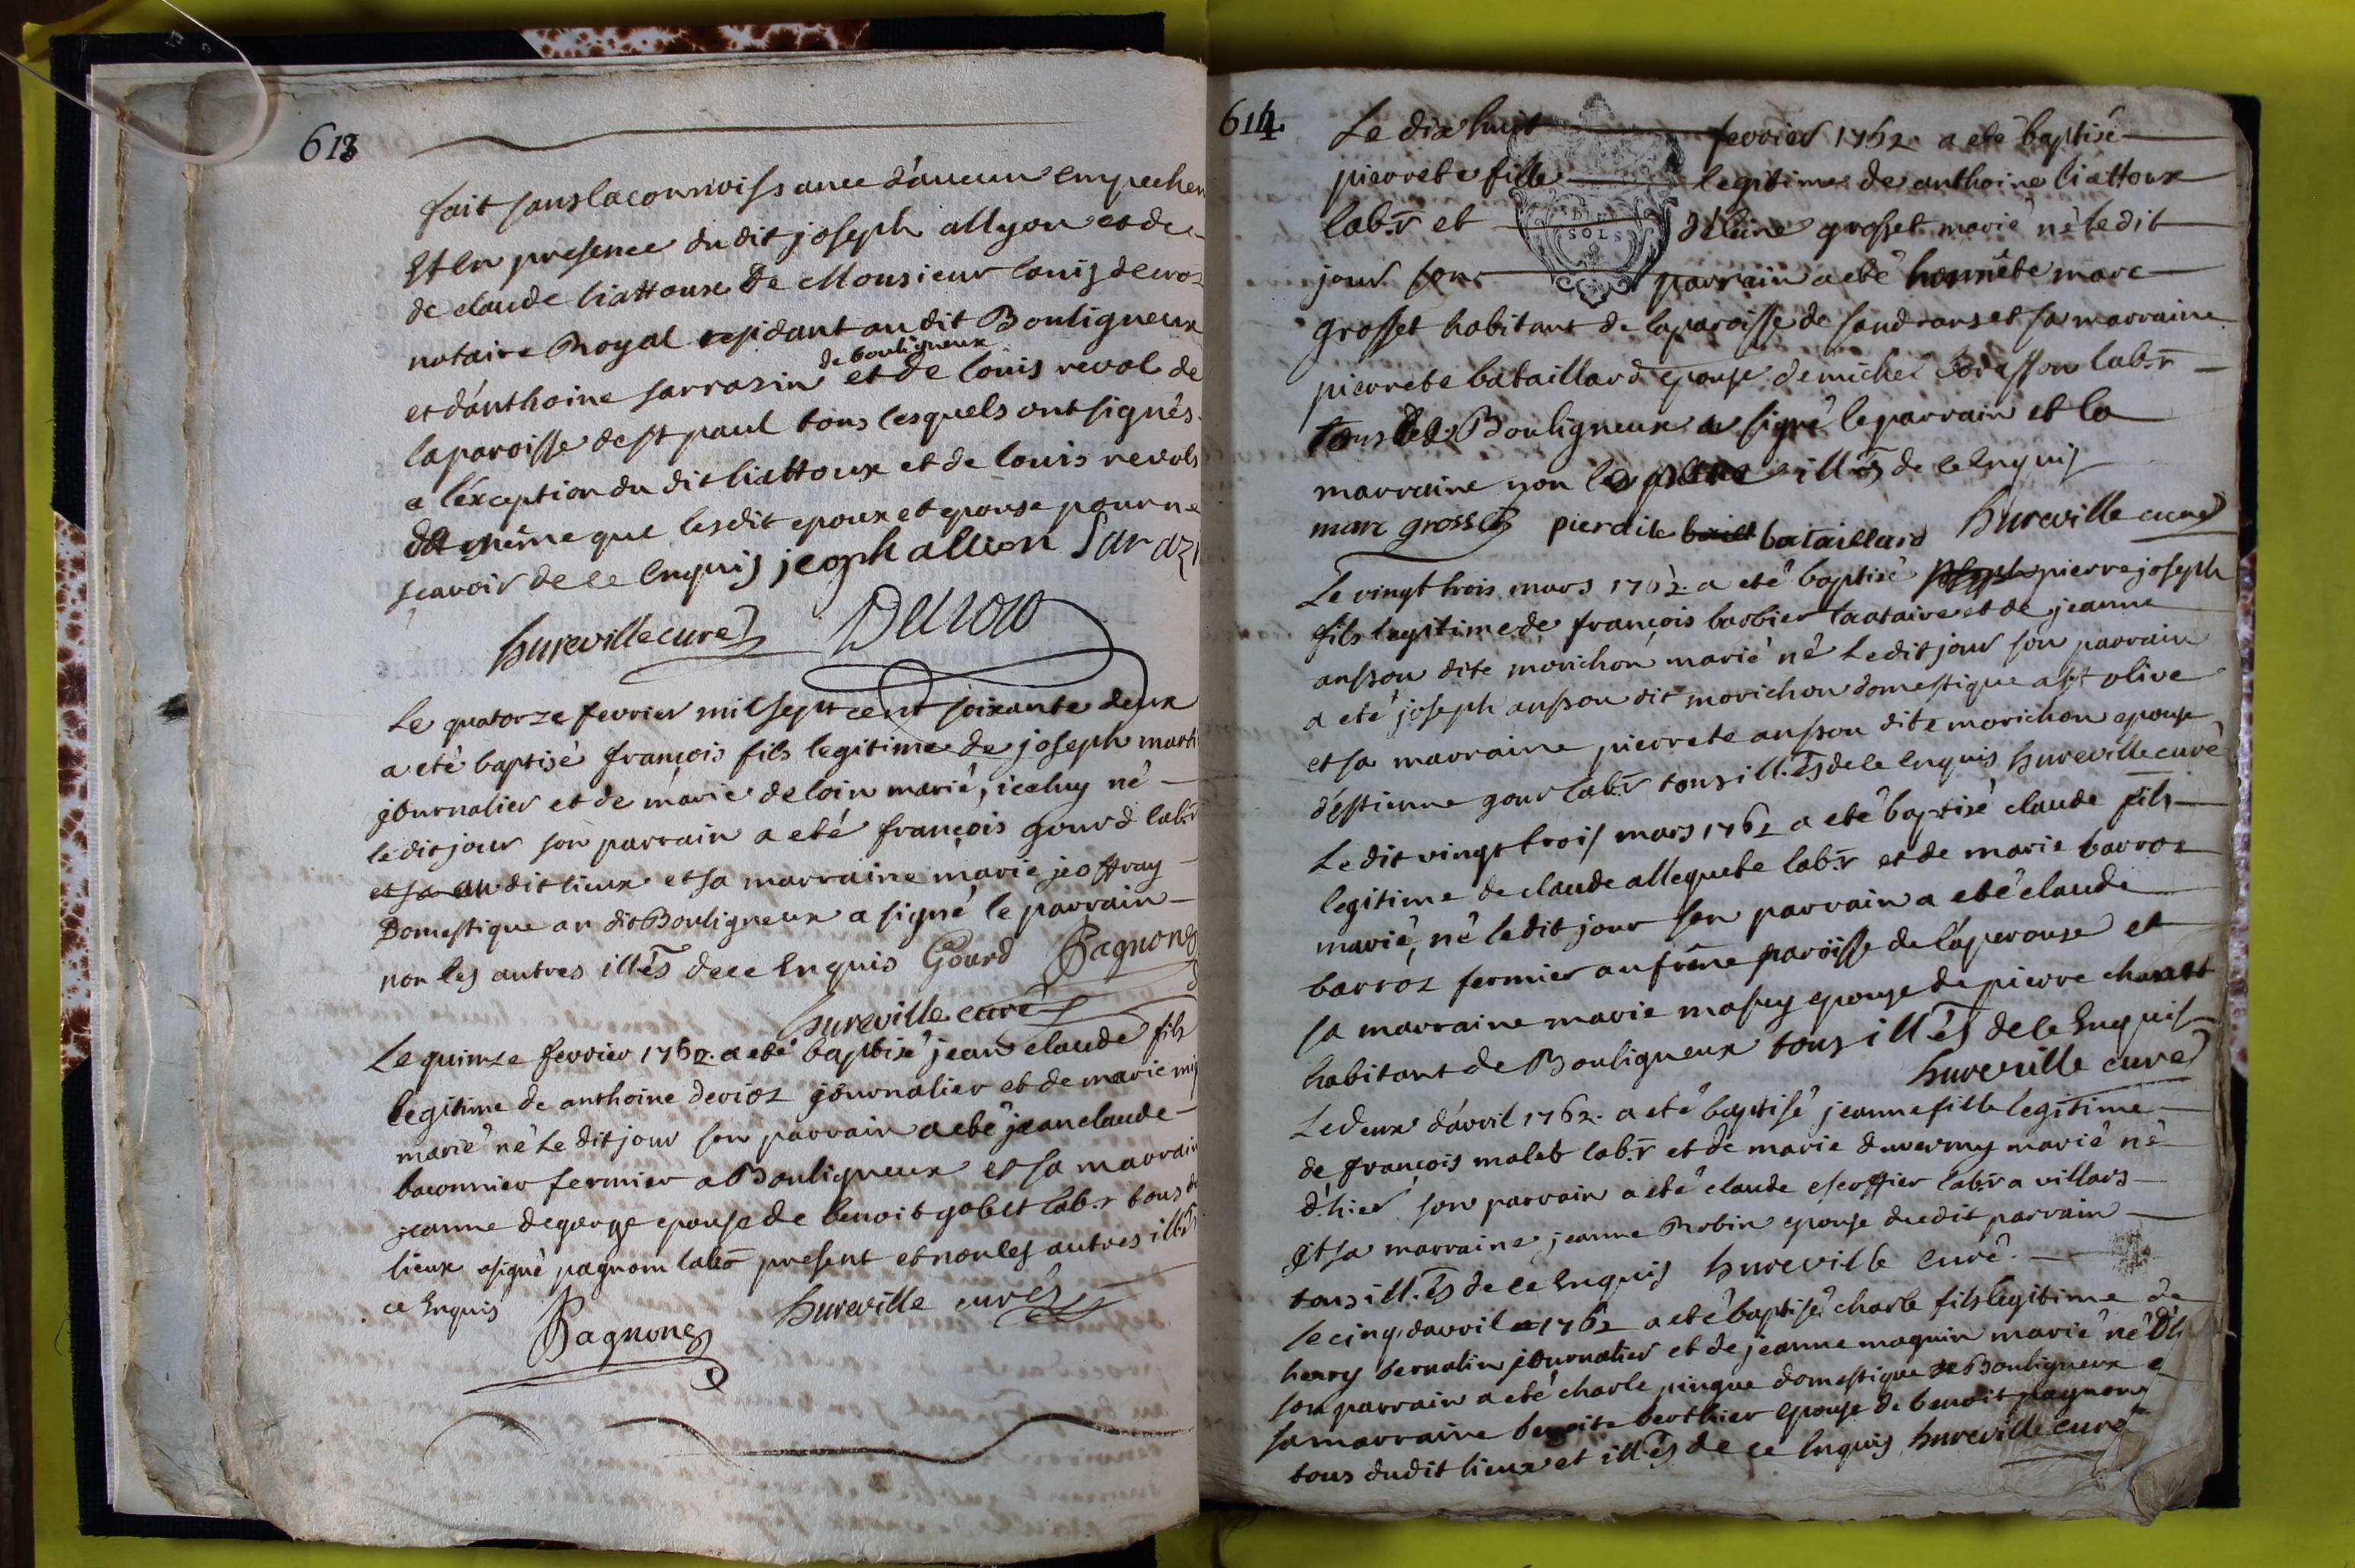 613
fait sans la connoissance d'aucun empechem
Et en presence du dit joseph allyon et de
de claude liattoux de Monsieur louis decroz
notaire Royal residant au dit Bouligneux
de bouligneux
et d'anthoine sarrasin et de louis revol de
la paroisse de st paul tous lesquels ont signés
a l'exception du dit liattoux et de louis revols
de même que lesdit epoux et epouse pour ne
scavoir de ce Enquis jeoph allion Sarazi
hureville curé Decroz
Le quatorze fevrier mil sept cent soixante deux
a eté baptisé françois fils legitime de joseph marti
journalier et de marie deloin marié, iceluy né
ledit jour son parrain a eté françois gourd lab.r
et sa au dit lieux et sa marraine marie jeoffray
Domestique au dit Bouligneux a signé le parrain
non les autres illés de ce Enquis Gourd Pagnong
hureville curé
Le quinze fevrier 1762. a eté baptisé jean claude fils
legitime de anthoine derioz journalier et de marie mi
marié né Le dit jour son parrain a eté jean claude
baconnier fermier a Bouligneux et sa marrain
jeanne degeorge epouse de benoit gobet lab.r tous d
lieux a signé pagnon labo present et non les autres illés
ce Enquis
Pagnong hureville curé
614
Le dix huit fevrier 1762 a eté baptisé
pierrete fille legitime de anthoine liattoux
lab.r et d'éleine grosset marié né ledit
jour son parrain a eté honnête marc
DIX SOLS
grosset habitant de la paroisse de sandrans et sa marraine
pierrete bataillard epouse de michel lab.r
tous de Bouligneux a signé le parrain et la
marraine non les illés de ce Enquis
marc grosset pieraite batailland hureville curé
Le vingt trois mars 1762. a eté baptisé pierre joseph
fils legitime de françois barbier locataire et de jeanne
ansson dite morichon marié né Ledit jour son parrain
a eté joseph ansson dit morichon domestique a st olive
et sa marraine pierrete ansson dite morichon epouse
d'estienne gour lab.r tous ill.és de ce Enquis hureville curé
Le dit vingt trois mars 1762 a eté baptisé claude fils
legitime de claude allequete lab.r et de marie barroz
marié, né ledit jour son parrain a eté claude
barroz fermier au frêne paroisse de láperouse et
sa marraine marie masuy epouse de pierre
habitant de Bouligneux tous illés de ce Enquis
hureville curé
Le deux d'avril 1762. a eté baptisé jeanne fille legitime
de françois malet lab.r et de marie duvernay marié né
d'hier son parrain a eté claude escoffier lab.r a villars
Et sa marraine jeanne Robin epouse dudit parrain
tous ill.és de ce Enquis hureville curé
le cinq davril 1762 a eté baptisé charle fils legitime de
henry bernalin journalier et de jeanne maguin marié né d'h
son parrain a eté charle pingue domestique de Bouligneux e
sa marraine benoite berthier epouse de benoit pagnon
tous dudit lieux et illés de ce Enquis hureville curé